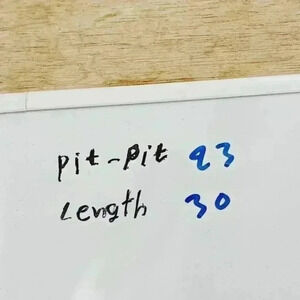 pit-pit 23
Length 30